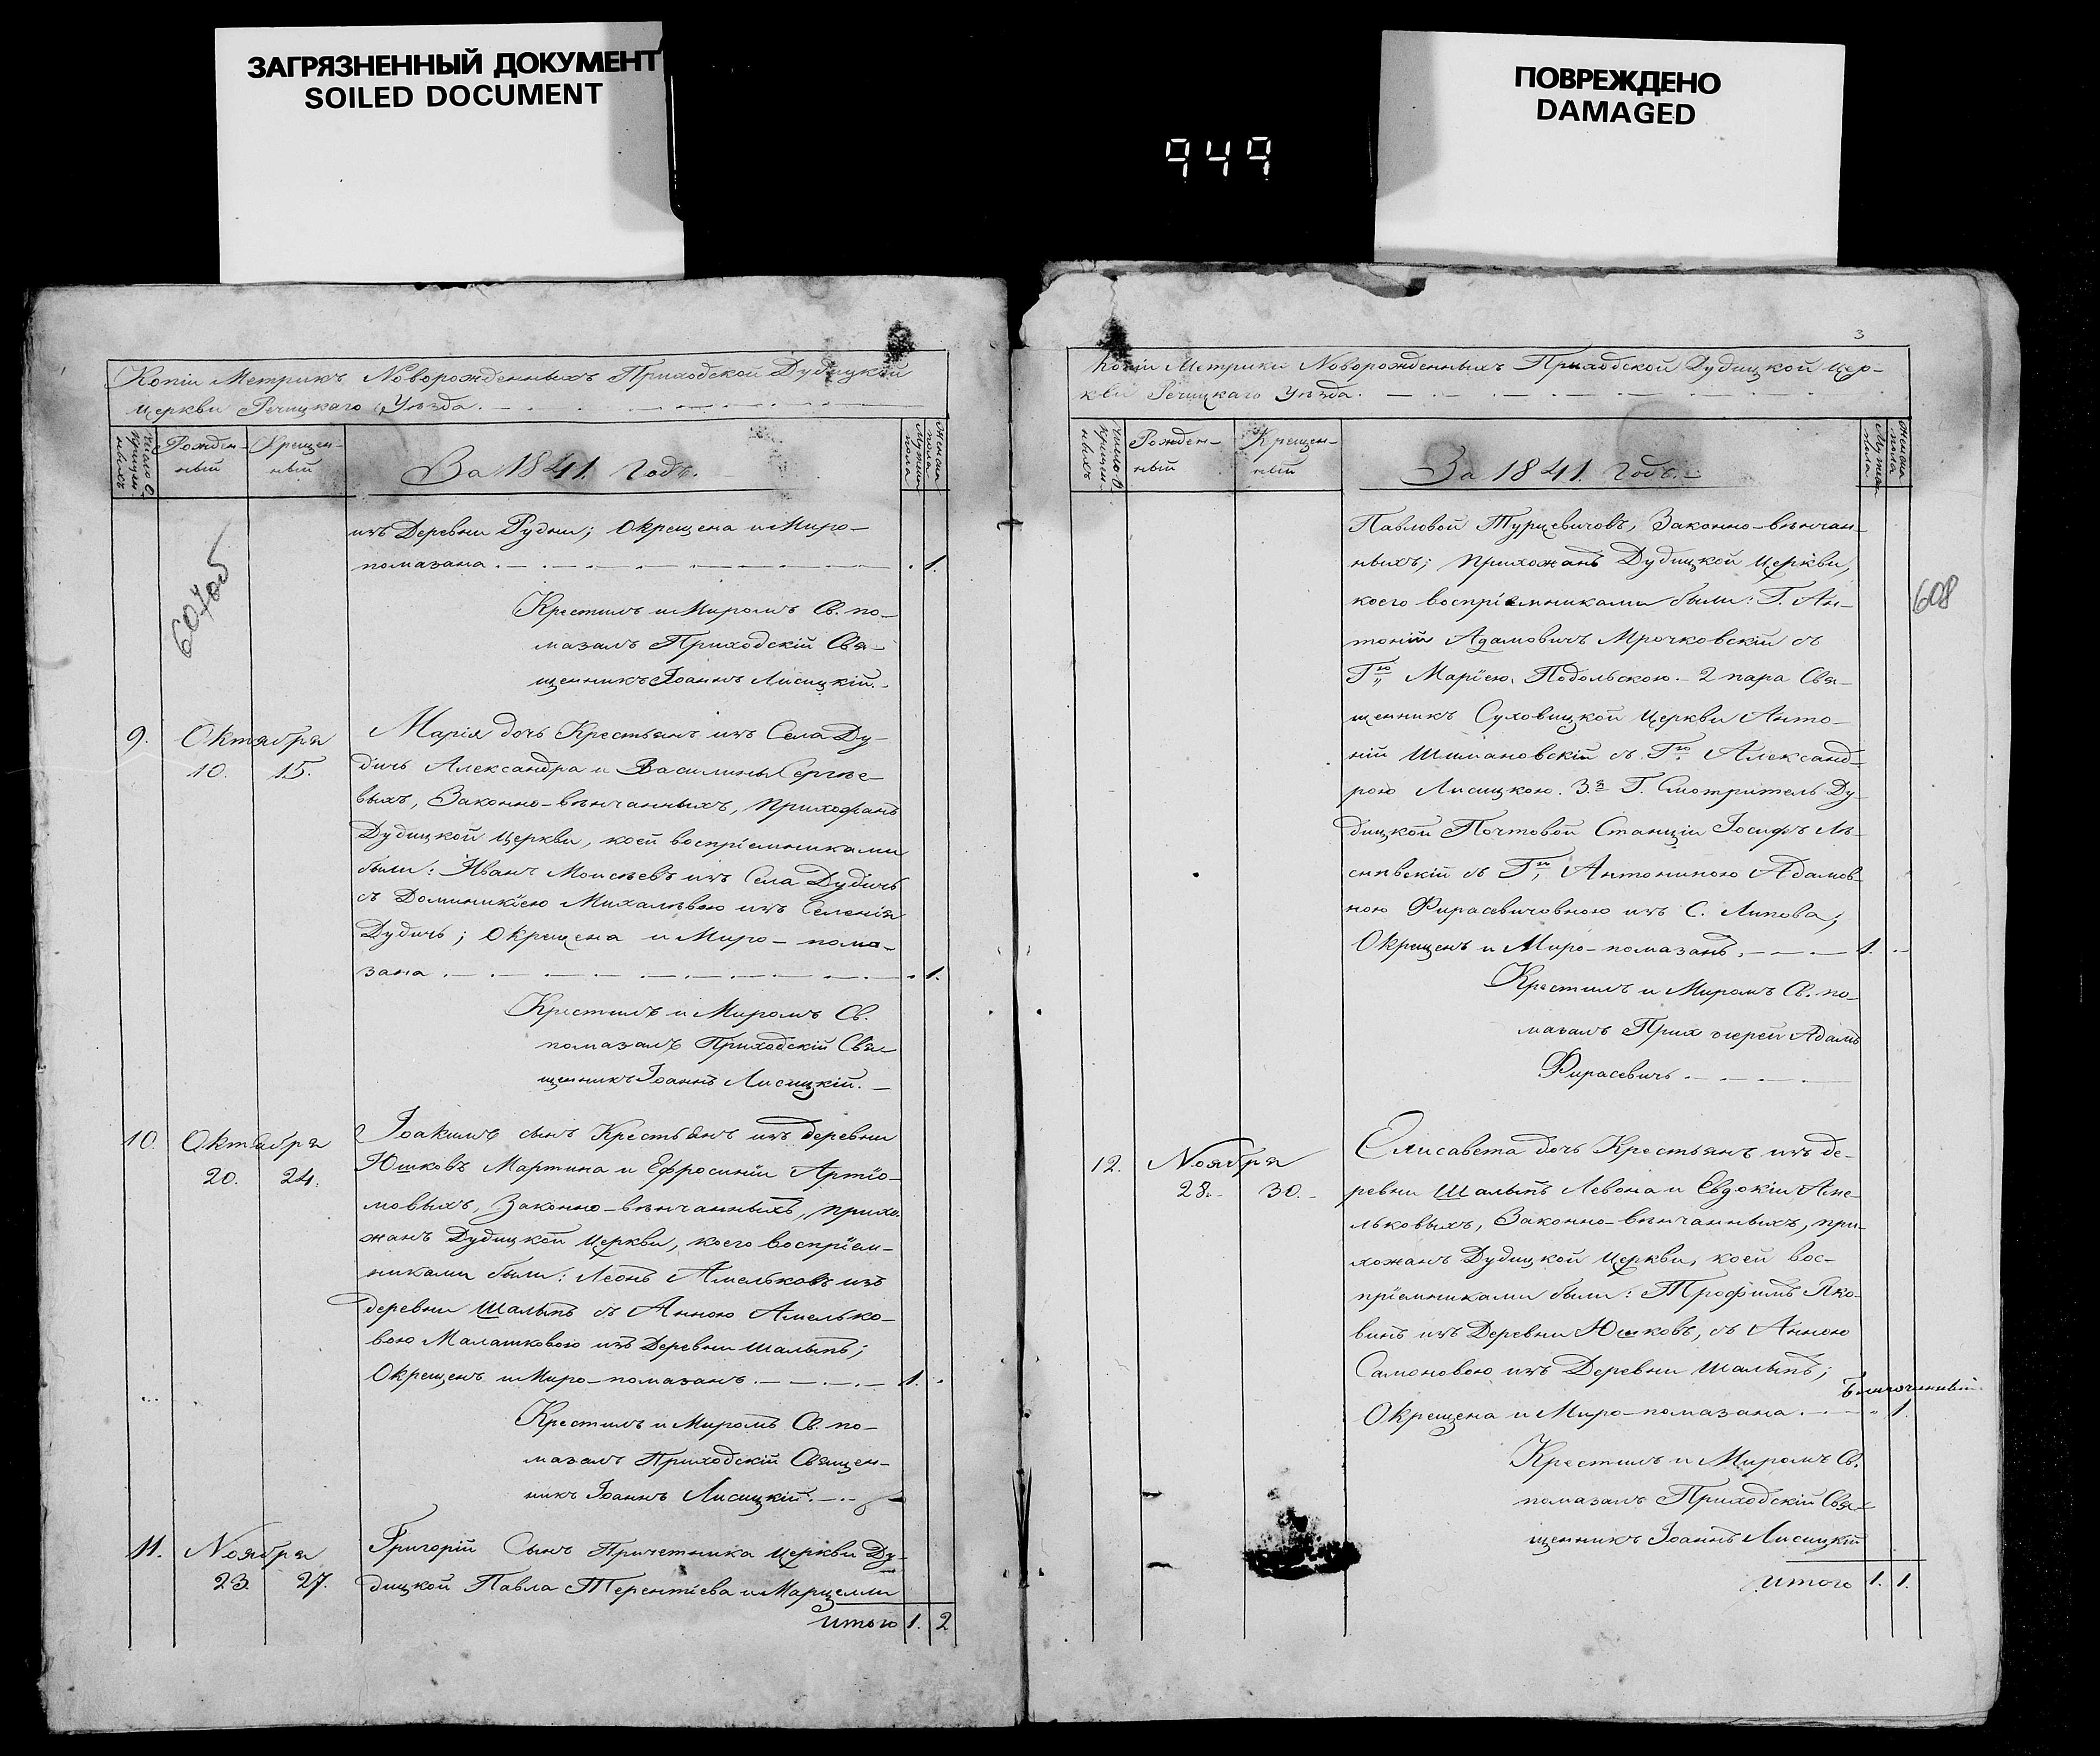 ЗАГРЯЗНЕННЫЙ ДОКУМЕНТ
SOILED DOCUMENT
ПОВРЕЖДЕНО
DAMAGED
949
Копіи Метрикъ Новорожденныхъ Приходской Дудицкой
Церкви Речицкаго Уѣзда.
Число О
крещен
ныхъ
Рожден-
ный
Крещен-
ный
За 1841. Годъ.
Мужска
пола
Женска
пола
607об
изъ Деревни Рудни; Окрещена и Миро-
помазана. 1.
Крестилъ и Миромъ Св. по-
мазалъ Приходскій Свя-
щенникъ Іоаннъ Лисицкій.
9. Октября
10. 15.
Марія дочь Крестьянъ изъ Села Ду-
дичъ Александра и Василины Сергѣе-
выхъ, Законно-вѣнчанныхъ, прихожанъ
Дудицкой Церкви, коей воспріемниками
были: Иванъ Моисѣевъ изъ Села Дудичъ
съ Доминикіею Михалѣвою изъ Селенія
Дудичъ; Окрещена и Миро-пома-
зана. 1.
Крестилъ и Миромъ Св.
помазалъ Приходскій Свя-
щенникъ Іоаннъ Лисицкій.
10. Октября
20. 24.
Іоакимъ сынъ Крестьянъ изъ деревни
Юшковъ Мартина и Ефросиніи Артіо-
мовыхъ, Законно-вѣнчанныхъ, прихо-
жанъ Дудицкой Церкви, коего воспріем-
никами были: Леонъ Амельковъ изъ
деревни Шалыпъ съ Анною Амелько-
вою Малашковою изъ Деревни Шалыпъ;
Окрещенъ и Миро-помазанъ. 1.
Крестилъ и Миромъ Св. по-
мазалъ Приходскій Священ-
никъ Іоаннъ Лисицкій.
11. Ноября
23. 27.
Григорій Сынъ Причетника Церкви Ду-
дицкой Павла Терентіева и Марцелли
Итого 1. 2
3
Копіи Метрики Новорожденныхъ Приходской Дудицкой Цер-
кви Речицкаго Уѣзда.
Число О
крещен
ныхъ
Рожден-
ный
Крещен-
ный
За 1841. Годъ.
Мужска
пола
Женска
пола
608
Павловой Турцевичовъ, Законно-вѣнчан-
ныхъ; прихожанъ Дудицкой Церкви,
коего воспріемниками были: Г. Ан-
тоній Адамовичъ Мрочковскій съ
Г-ю Маріею Подольскою. 2 пара Свя-
щенникъ Суховицкой Церкви Анто-
ній Шимановскій съ Г-ю Александ-
рою Лисицкою. 3.я Г. Смотритель Ду-
дицкой Почтовой Станціи Іосифъ
съ Г-ю Антониною Адамов-
ною Фирасевичовною изъ С. Липова;
Окрещенъ и Миро-помазанъ. 1.
Крестилъ и Миромъ Св. по-
мазалъ Адамъ
Фирасевичъ.
12. Ноября
28. 30.
Елисавета дочь Крестьянъ изъ де-
ревни Шалыпъ Левона и Евдокіи Аме-
льковыхъ, Законно-вѣнчанныхъ, при-
хожанъ Дудицкой Церкви, коей вос-
пріемниками были: Трофимъ Яко-
винъ изъ Деревни Юшковъ, съ Анною
Самоновою изъ Деревни Шалыпъ;
Благочинный
Окрещена и Миро-помазана. 1.
Крестилъ и Миромъ Св.
помазалъ Приходскій Свя-
щенникъ Іоаннъ Лисицкій
Итого 1. 1.